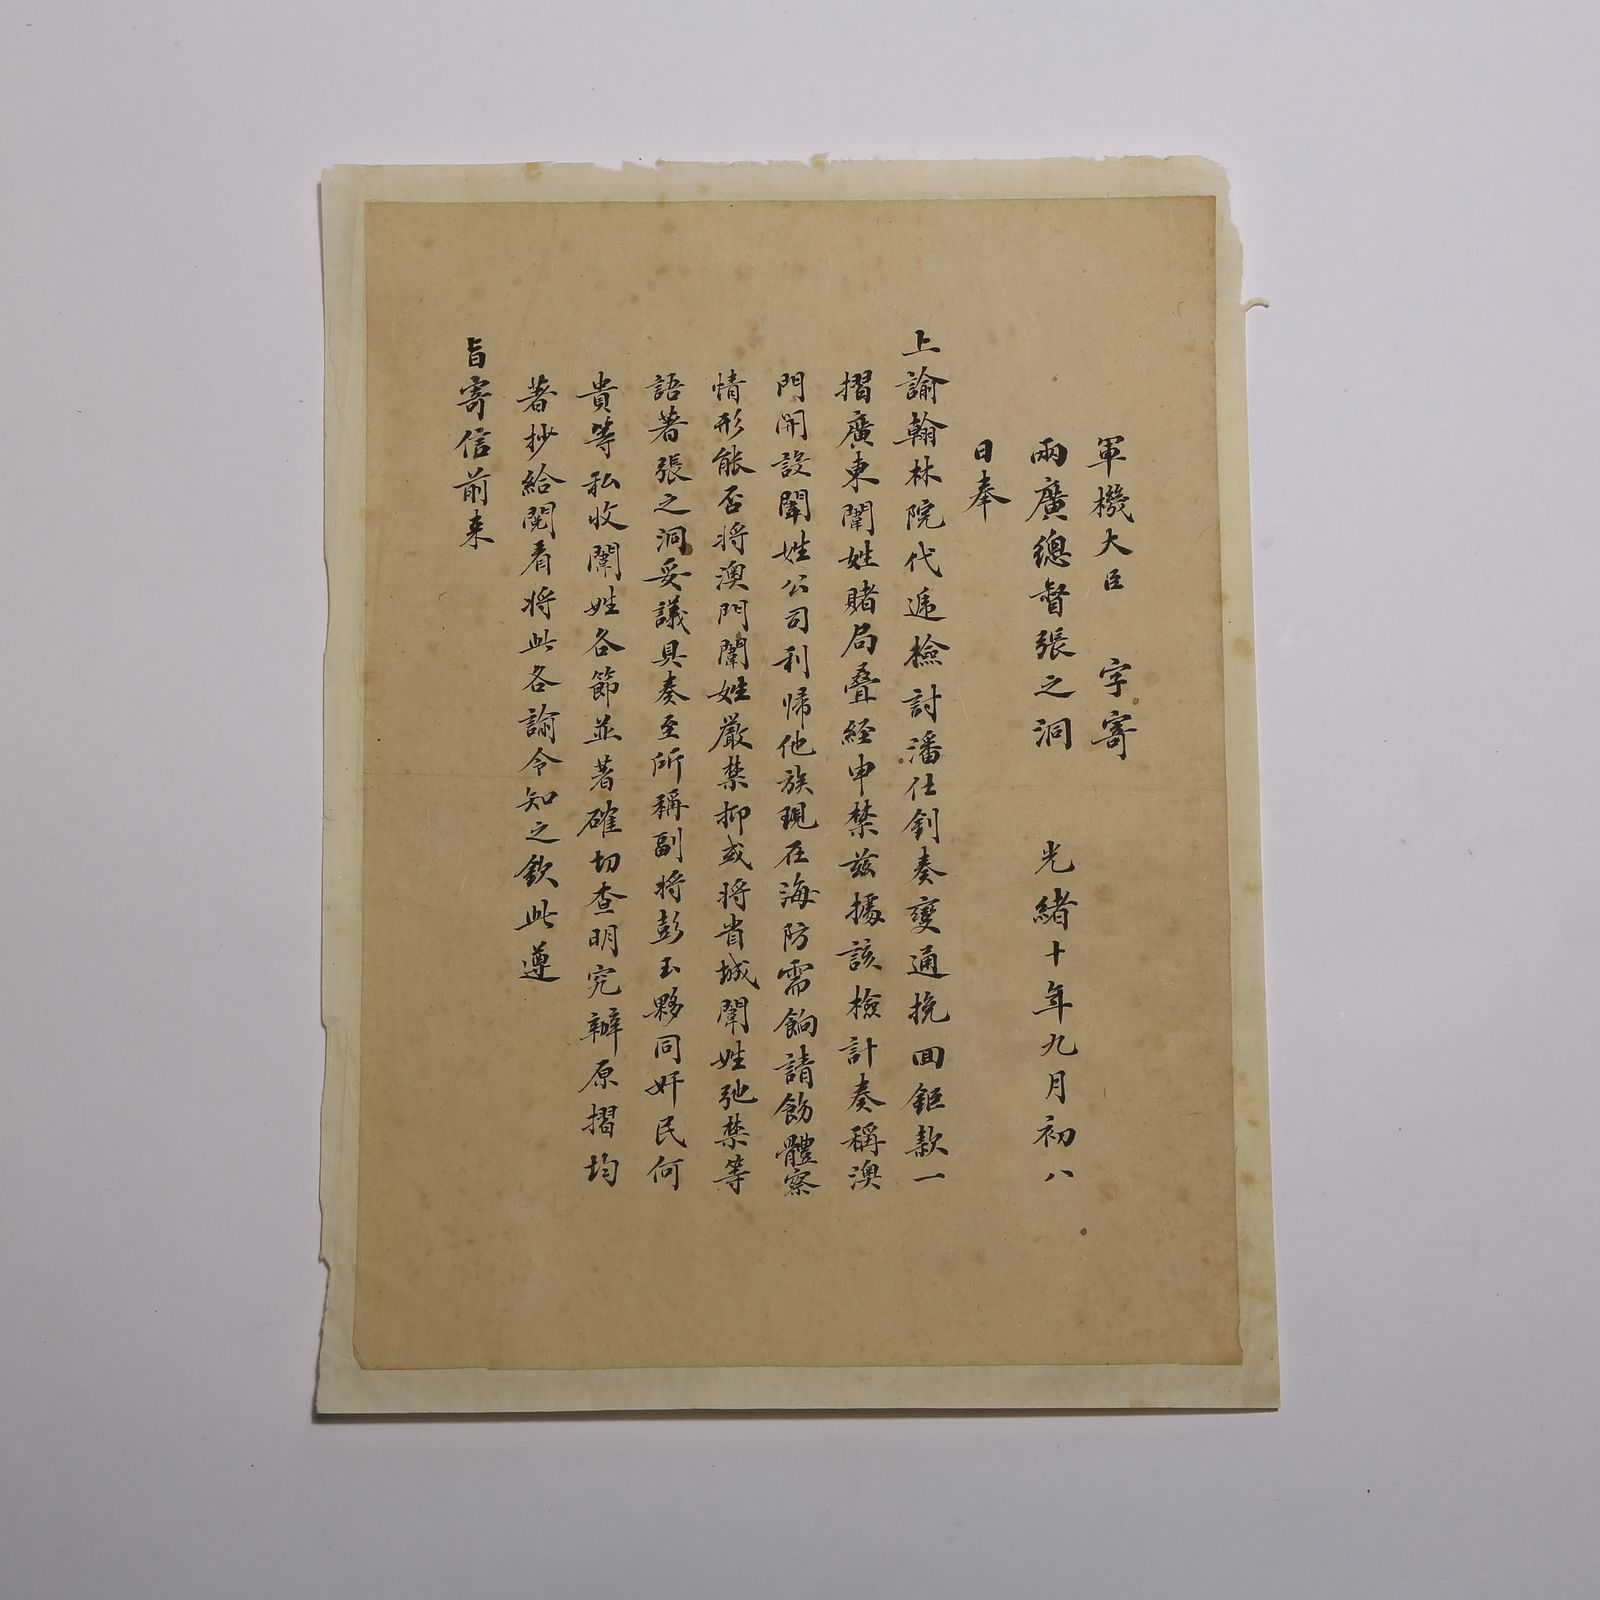 軍機大臣　字寄
兩廣總督張之洞　光緒十年九月初八
日奉
上諭翰林院代遞檢討潘仕釗奏變通挽回鉅款一
摺廣東闈姓賭局叠經申禁茲據該檢計奏稱澳
門開設闈姓公司利歸他族現在海防需餉請飭體察
情形能否将澳門闈姓嚴禁抑或将省城闈姓弛禁等
語著張之洞妥議具奏至所稱副将彭玉夥同奸民何
貴等私收闈姓各節並著確切查明究辦原摺均
著抄給閱看将此各諭令知之欽此遵
旨寄信前来